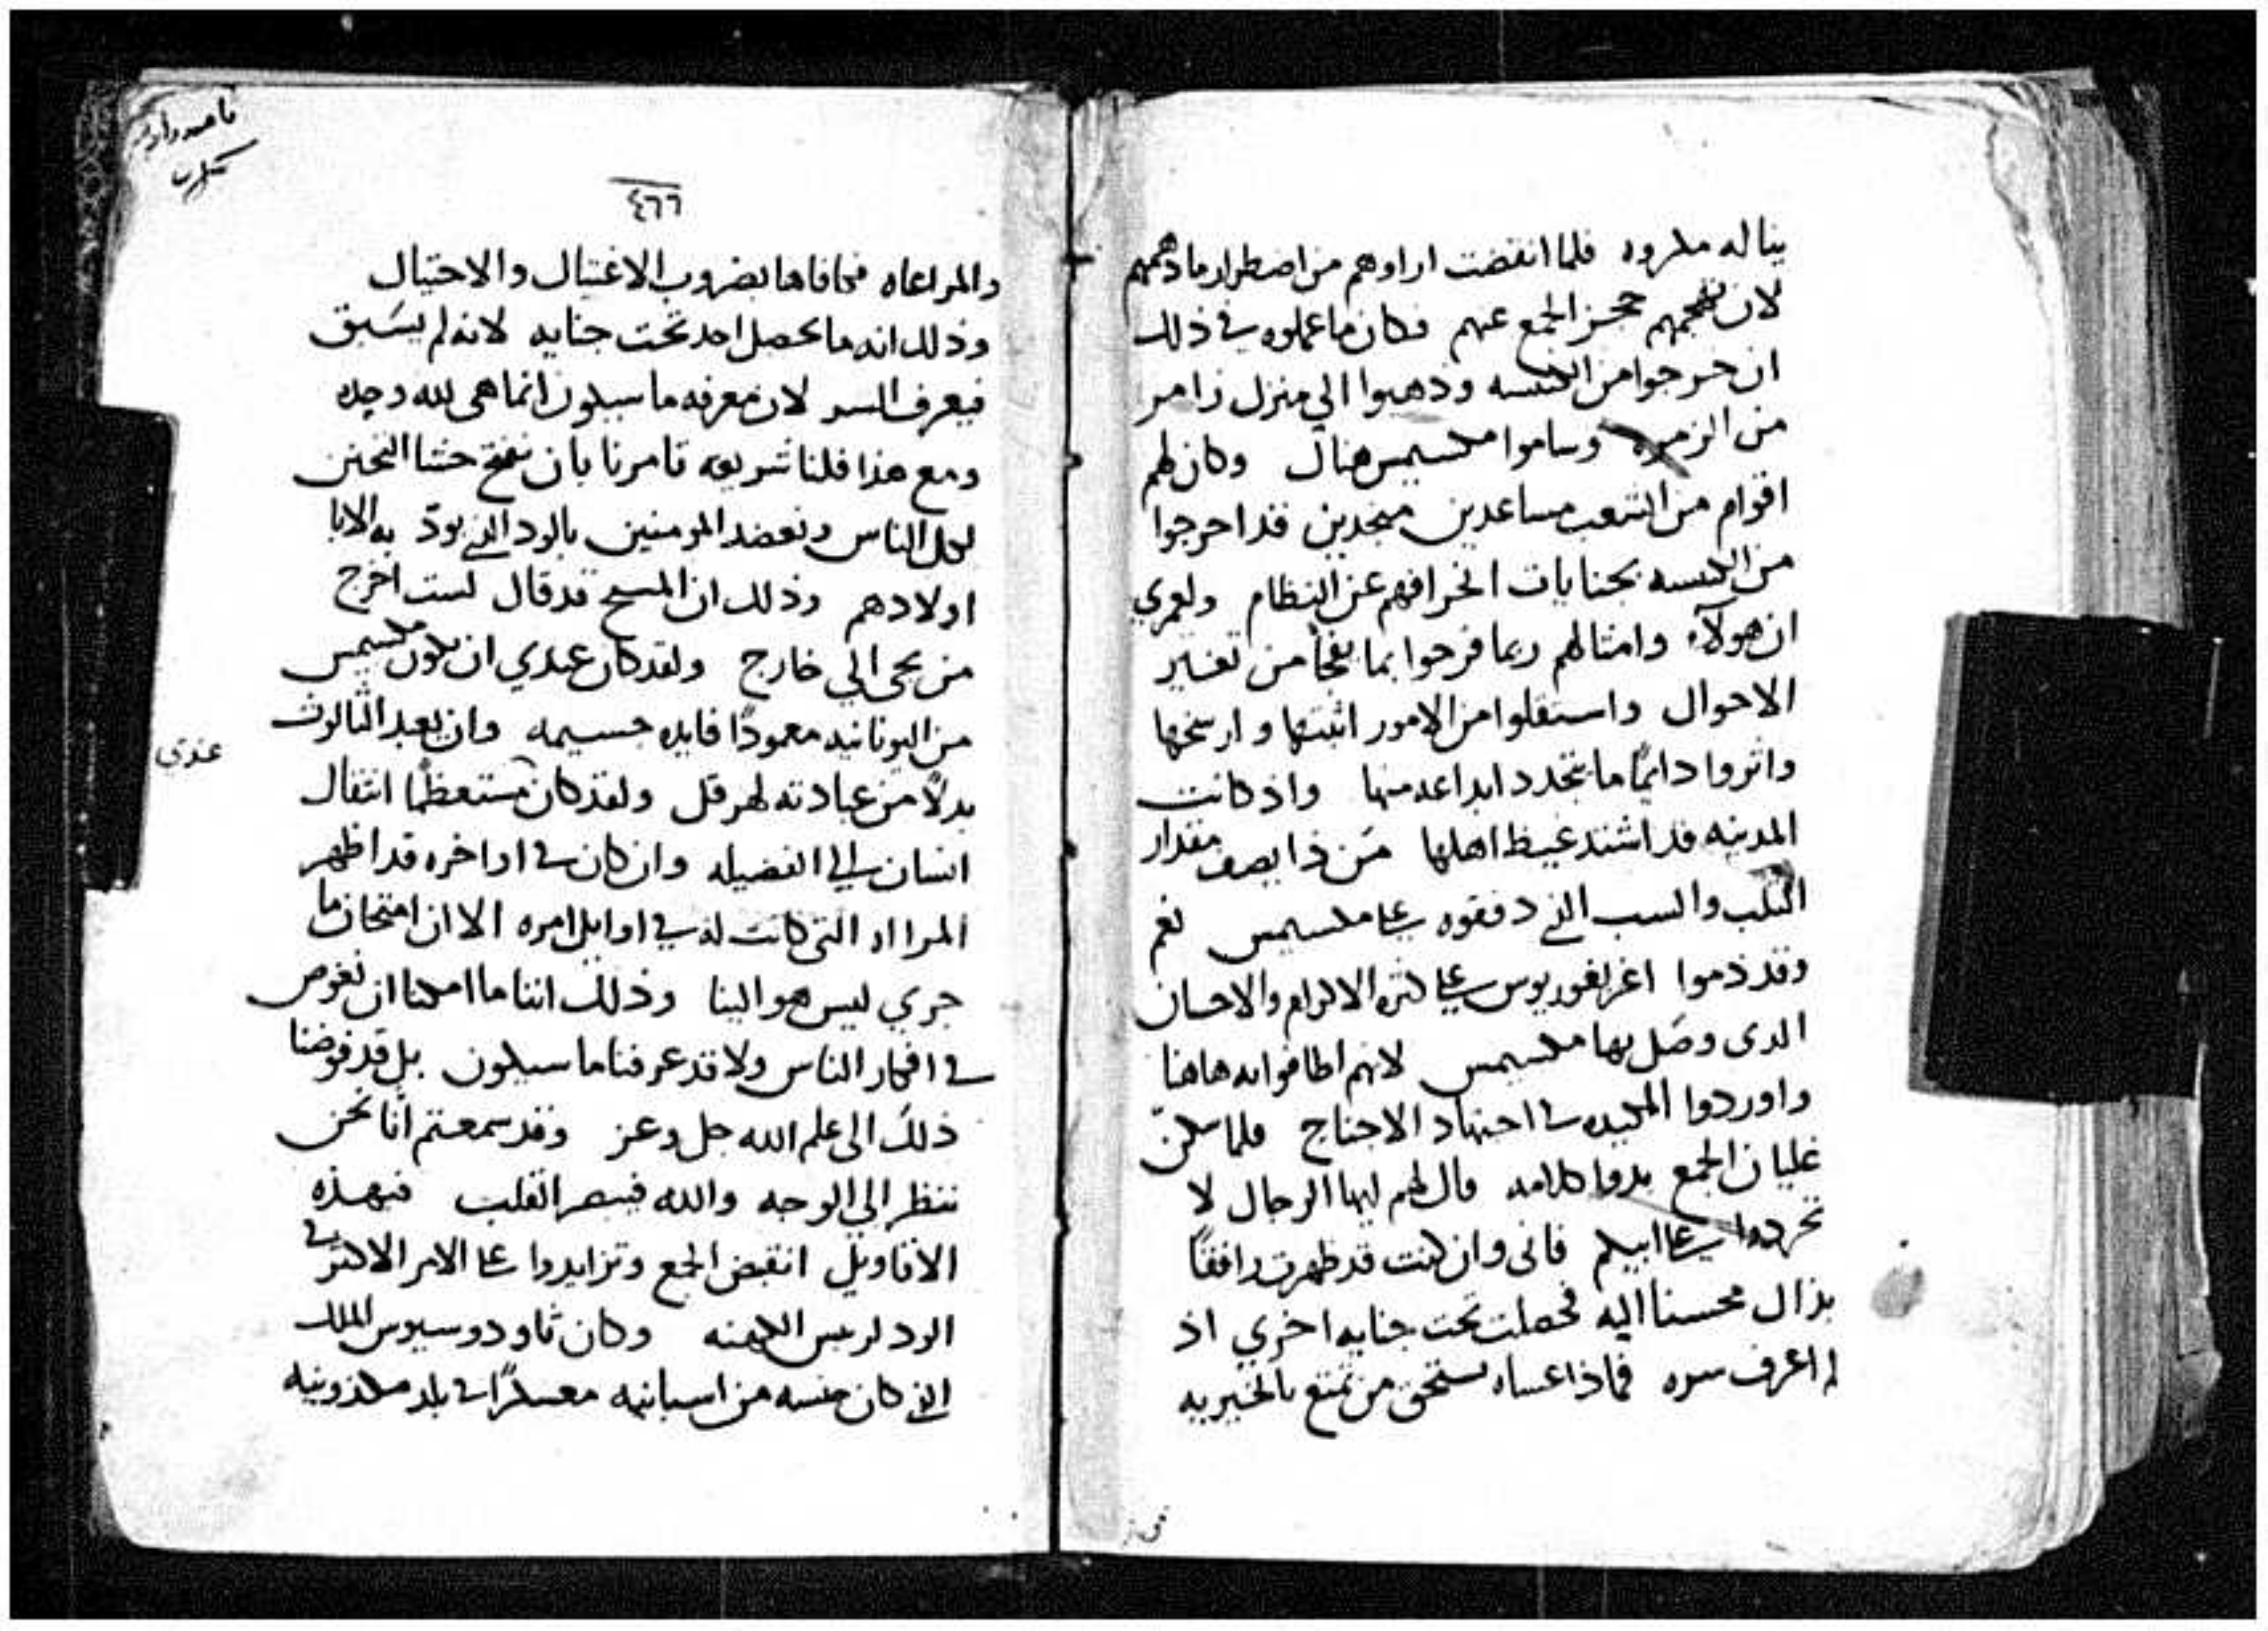 يناله مكروه فلما انقضت اراوهم من اضطرار ما دهمهم
لان حجز الجمع عنهم فكان ما عملوه في ذلك
ان خرجوا من الكنيسه وذهبوا الي منزل زامر
من الزمره وساموا مكسيمس هناك وكان لهم
اقوام من الشعب مساعدين منجدين قد اخرجوا
من الكنيسه بجنايات انحرافهم عن النظام ولعمري
ان هولآء وامثالهم ربما فرحوا بما يفجأ من تغيير
الاحوال واستقلوا من الامور اثبتها وارسخها
واثروا دايمًا ما تجدد ابداعه منها واذ كانت
المدينه قد اشتد غيظ اهلها مَن ذا يصف مقدار
الثلب والسب الذي دفقوه علي مكسيمس نعم
وقد ذموا اغريغوريوس علي كثرة الاكرام والاحسان
الدي وصَل بها مكسيمس لانهم اطافوا به هاهنا
واوردوا المكيده في اجتهاد الاجناح فلما سكّن
غليان الجمع بدوا كلامه قال لهم ايها الرجال لا
تحردوا علي ابيكم فاني وان كنت قد ظهرت رافقًا
بذاك محسنا اليه فحصلت تحت جنايه اخري اذ
لم اعرف سره فماذا عساه يستحق من تمتع بالخيريه
٤٦٦
والمراعاه فكافاها بضروب الاغتيال والاحتيال
وذلك انه ما يحصل احد تحت جنايه لانه لم يسَبق
فيعرف السر لان معرفه ما سيكون انما هي لله وحده
ومع هذا فلنا شريعه تامرنا بان نفتح حشا التحنن
لكل الناس ونعضد المومنين بالود الذي يودّ به الابا
اولادهم وذلك ان المسيح قد قال لست اخرج
من يجي الي خارج ولقد كان عندي ان يكون مكسيمس
من اليونانيه معمودًا فايده جسيمه وان يعبد الثالوث
عندي
بدلاً من عبادته لهرقل ولقد كان مستعظمًا انتقال
انسان الي الفضيله وان كان في اواخره قد اظهر
المرااه التي كانت له في اوايل امره الا ان امتحان ما
جري ليس هو الينا وذلك اننا ما امكنا ان نغوص
في افكار الناس ولا قد عرفنا ما سيكون بل قد فوضنا
ذلك الى علم الله جل وعز وقد سمعتم انّا نحن
ننظر الي الوجه والله فيبصر القلب فبهذه
الاقاويل انقبض الجمع وتزايدوا علي الامر الاكثر في
الود لرييس الكهنه وكان ثاودوسيوس الملك
الذي كان جنسه من اسبانيه معسكرًا في بلد مكدونيه